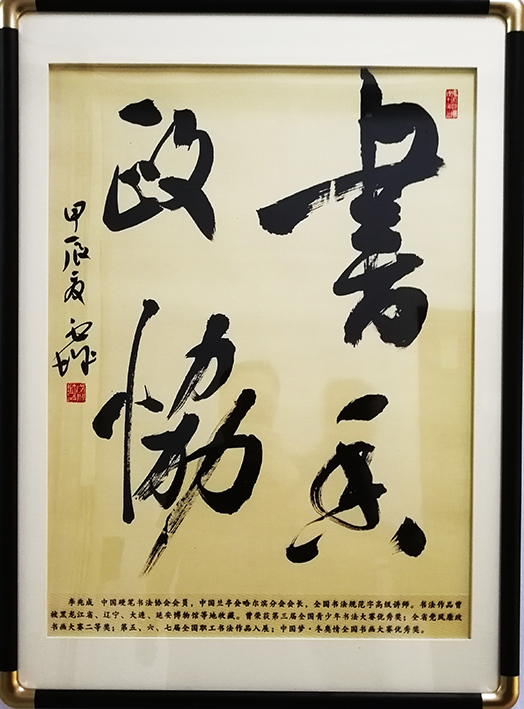 書香
政協
甲辰夏
李兆成 中国硬笔书法协会会员，中国兰亭会哈尔滨分会会长，全国书法规范字高级讲师。书法作品曾
被黑龙江省、辽宁、大连、延安博物馆等地收藏。曾荣获第三届全国青少年书法大赛优秀奖；全省党风廉政
书画大赛二等奖；第五、六、七届全国职工书法作品入展；中国梦·冬奥情全国书画大赛优秀奖。